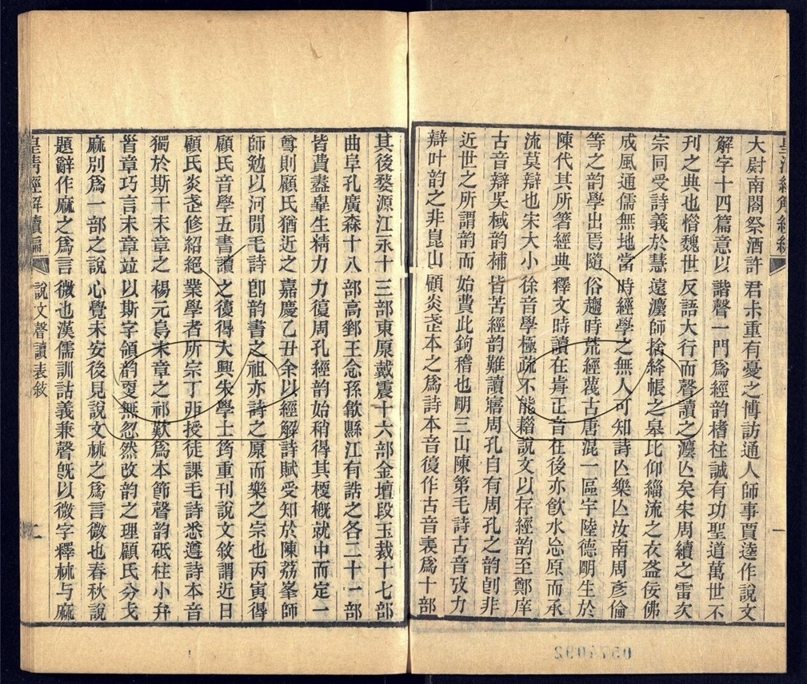 大尉南閣祭酒許君未重有憂之博訪通人師事賈逵作說文
解字十四篇意以諧聲一門為經韻楮柱誠有功聖道萬世不
刊之典也慆魏世反語大行而聲讀之灋亾矣宋周續之雷次
宗同受詩義於慧遠灋師捨絳帳之皋比仰緇流之衣盋佞佛
成風通儒無地當時經學之無人可知詩亾樂亾汝南周彥倫
等之韵學出焉隨俗趨時荒經蔑古唐混一區宇陸德明生於
陳代其所箸經典釋文時讀在歬正音在後亦飲水忩原而承
流莫辯也宋大小徐音學極疏不能繇說文以存經韵至鄭庠
古音辯吳棫韵補皆苦經韵難讀寤周孔自有周孔之韵卽非
近世之所謂韵而始費此鉤稽也明三山陳第毛詩古音攷力
辯叶韵之非崑山顧炎武本之為詩本音復作古音表為十部
其後婺源江永十三部東原戴震十六部金壇段玉裁十七部
曲阜孔廣森十八部高郵王念孫歙縣江有誥之各二十一部
皆費盡畢生精力復周孔經韵始稍得其梗概就中而定一
尊則顧氏猶近之嘉慶乙丑余以經解詩賦受知於陳荔峯師
師勉以河閒毛詩卽韵書之祖亦詩之原而樂之宗也丙寅得
顧氏音學五書讀之復得大興朱學士筠重刊說文敘謂近日
顧氏炎武修紹絕業學者所宗丁亦授徒課毛詩悉遵詩本音
獨於斯干末章之楊元鳥末章之祁歎為本節聲韵砥柱小弁
首章巧言末章竝以斯字領韵叓無忽然改韵之理顧氏分戈
麻別為一部之說心覺未安後見說文𣏟之為言微也春秋說
題辭作麻之為言微也漢儒訓詁義兼聲旣以微字釋𣏟与麻
皇清經解續編
說文聲讀表敘
0574092